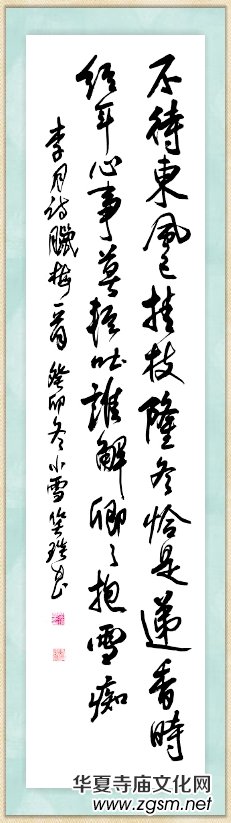 不待東風已挂枝隆冬恰是遞香時
經年心事莫輕吐誰解卿々抱雪痴
李月诗臘梅一首癸卯冬小雪
华夏寺庙文化网
www.zgsm.net